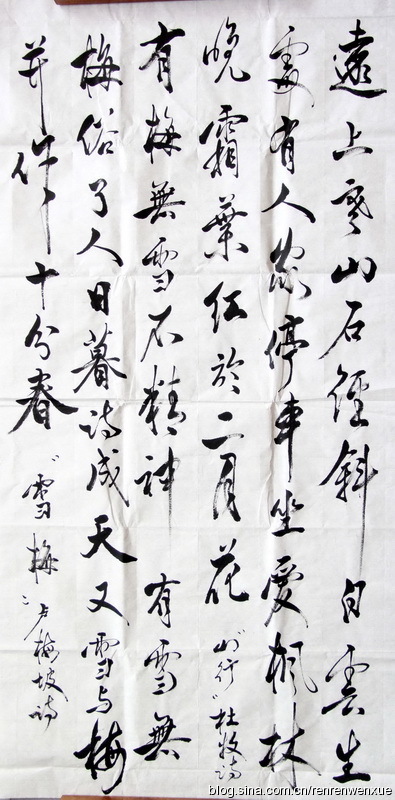 遠上寒山石徑斜 白雲生
處有人家停車坐愛楓林
晚霜葉红於二月花 "山行"杜牧诗
有梅無雪不精神 有雪無
梅俗了人日暮诗成天又雪与梅
并作十分春 "雪梅"卢梅坡诗
blog.sina.com.cn/renrenwenxue